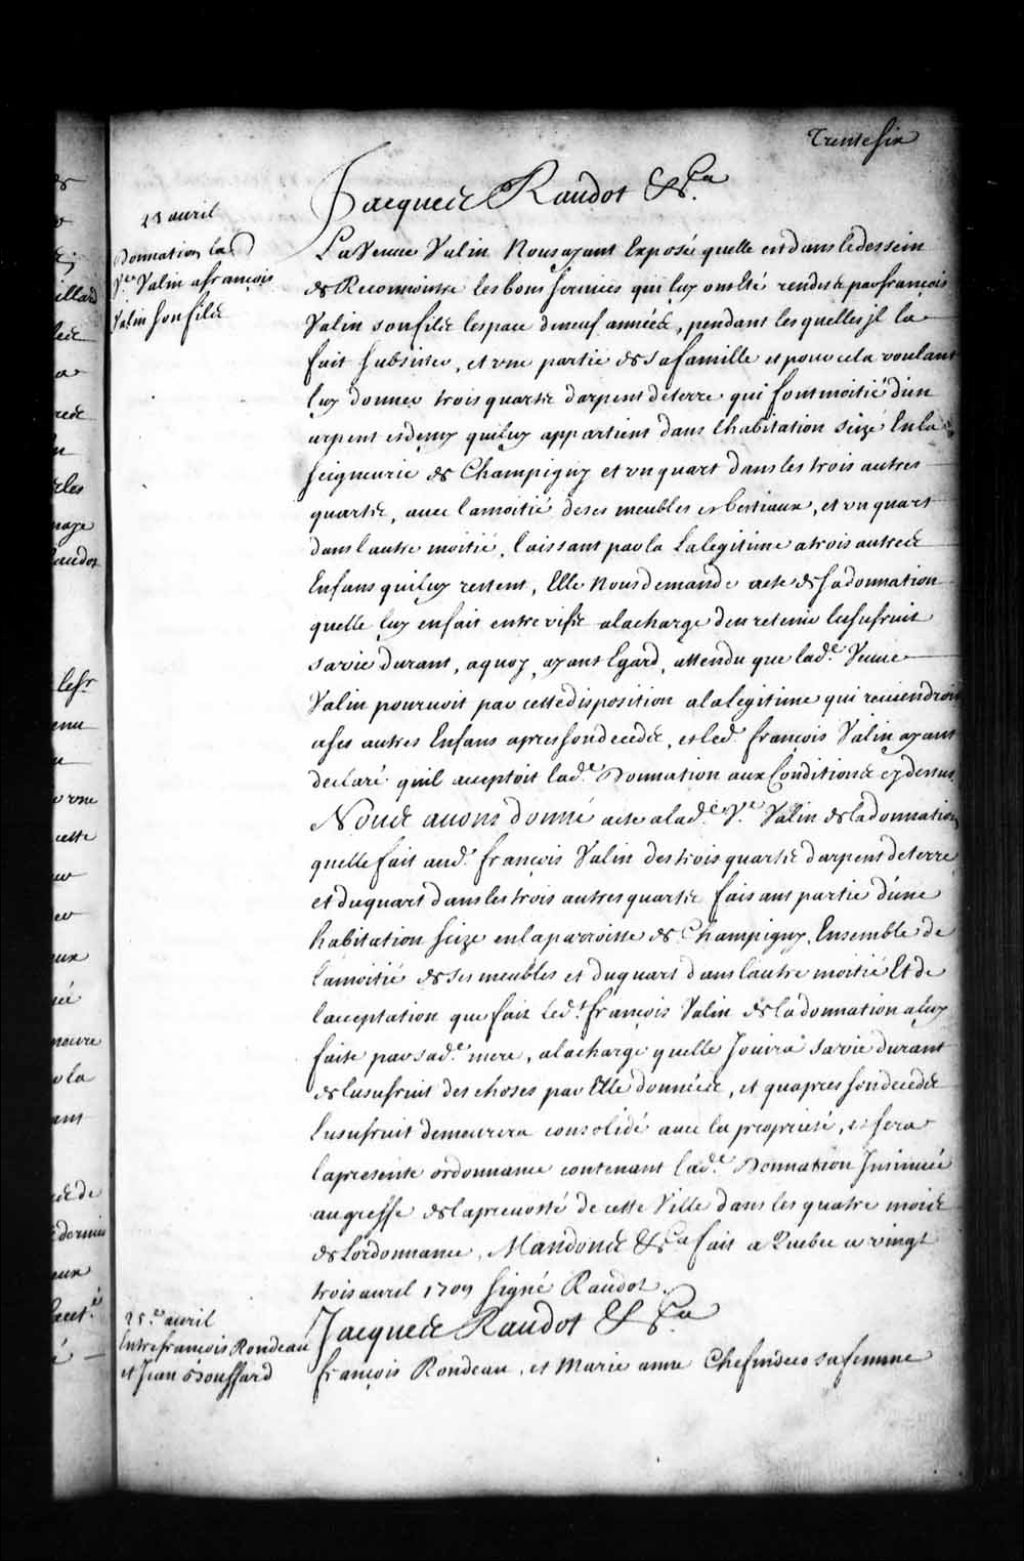 Trente six
Jacques Raudot &c.a
23 avril
Donnation la
V.e Valin a françois
Valin son filz
La Veuve Valin Nous ayant Exposé quelle est dans le dessein
de Reconnoistre les bons services qui luy ont Eté rendus par françois
Valin son filz lespace de neuf années, pendant les quelles jl la
fait subsister, et une partie de sa famille et pour cela voulant
luy donner trois quartz darpent de terre qui font moitié d'un
arpent et demy quiluy appartient dans l'habitation scizé En la
seigneurie de Champigny et un quart dans les trois autres
quartz, avec la moitié de ses meubles et bestiaux, et un quart
dans l'autre moitié, laissant par la La legitime a trois autres
Enfans quiluy restent, Elle Nous demande acte de sa donnation
quelle luy en fait entre vifs a la charge den retenir lusufruit
sa vie durant, aquoy, ayant Egard, attendu que lad.e Veuve
Valin pourvoit par cette disposition a la legitime qui reviendroit
a ses autres Enfans apres son decedz, et led. françois Valin ayant
declaré quil acceptoit lad.e Donnation aux Conditions cy dessus
Nous avons donné acte a lad.e V.e Valin de la donnation
quelle fait aud. françois Valin des trois quartz darpent de terre
et du quart dans les trois autres quartz faisant partie d'une
habitation scize en la parroisse de Champigny, Ensemble de
La moitié de ses meubles et du quart dans l'autre moitié Et de
l'acceptation que fait Led.t françois Valin de la donnation a luy
faite par sad.e mere, a la charge quelle Jouira sa vie durant
de lusufruit des choses par Elle données, et quapres son decedz
Lusufruit demeurera consolidé avec la proprieté, et sera
la presente ordonnance contenant lad.e Donnation Jnsinuée
au greffe de la prevosté de cette Ville dans les quatre mois
de Lordonnance, Mandons &c.a fait a Quebec ce vingt
trois avril 1709 signé Raudot.
25.e avril
Entre françois Rondeau
et Jean Bouffard
Jacques Raudot &c.a
françois Rondeau, et Marie anne Chesmoeo sa femme